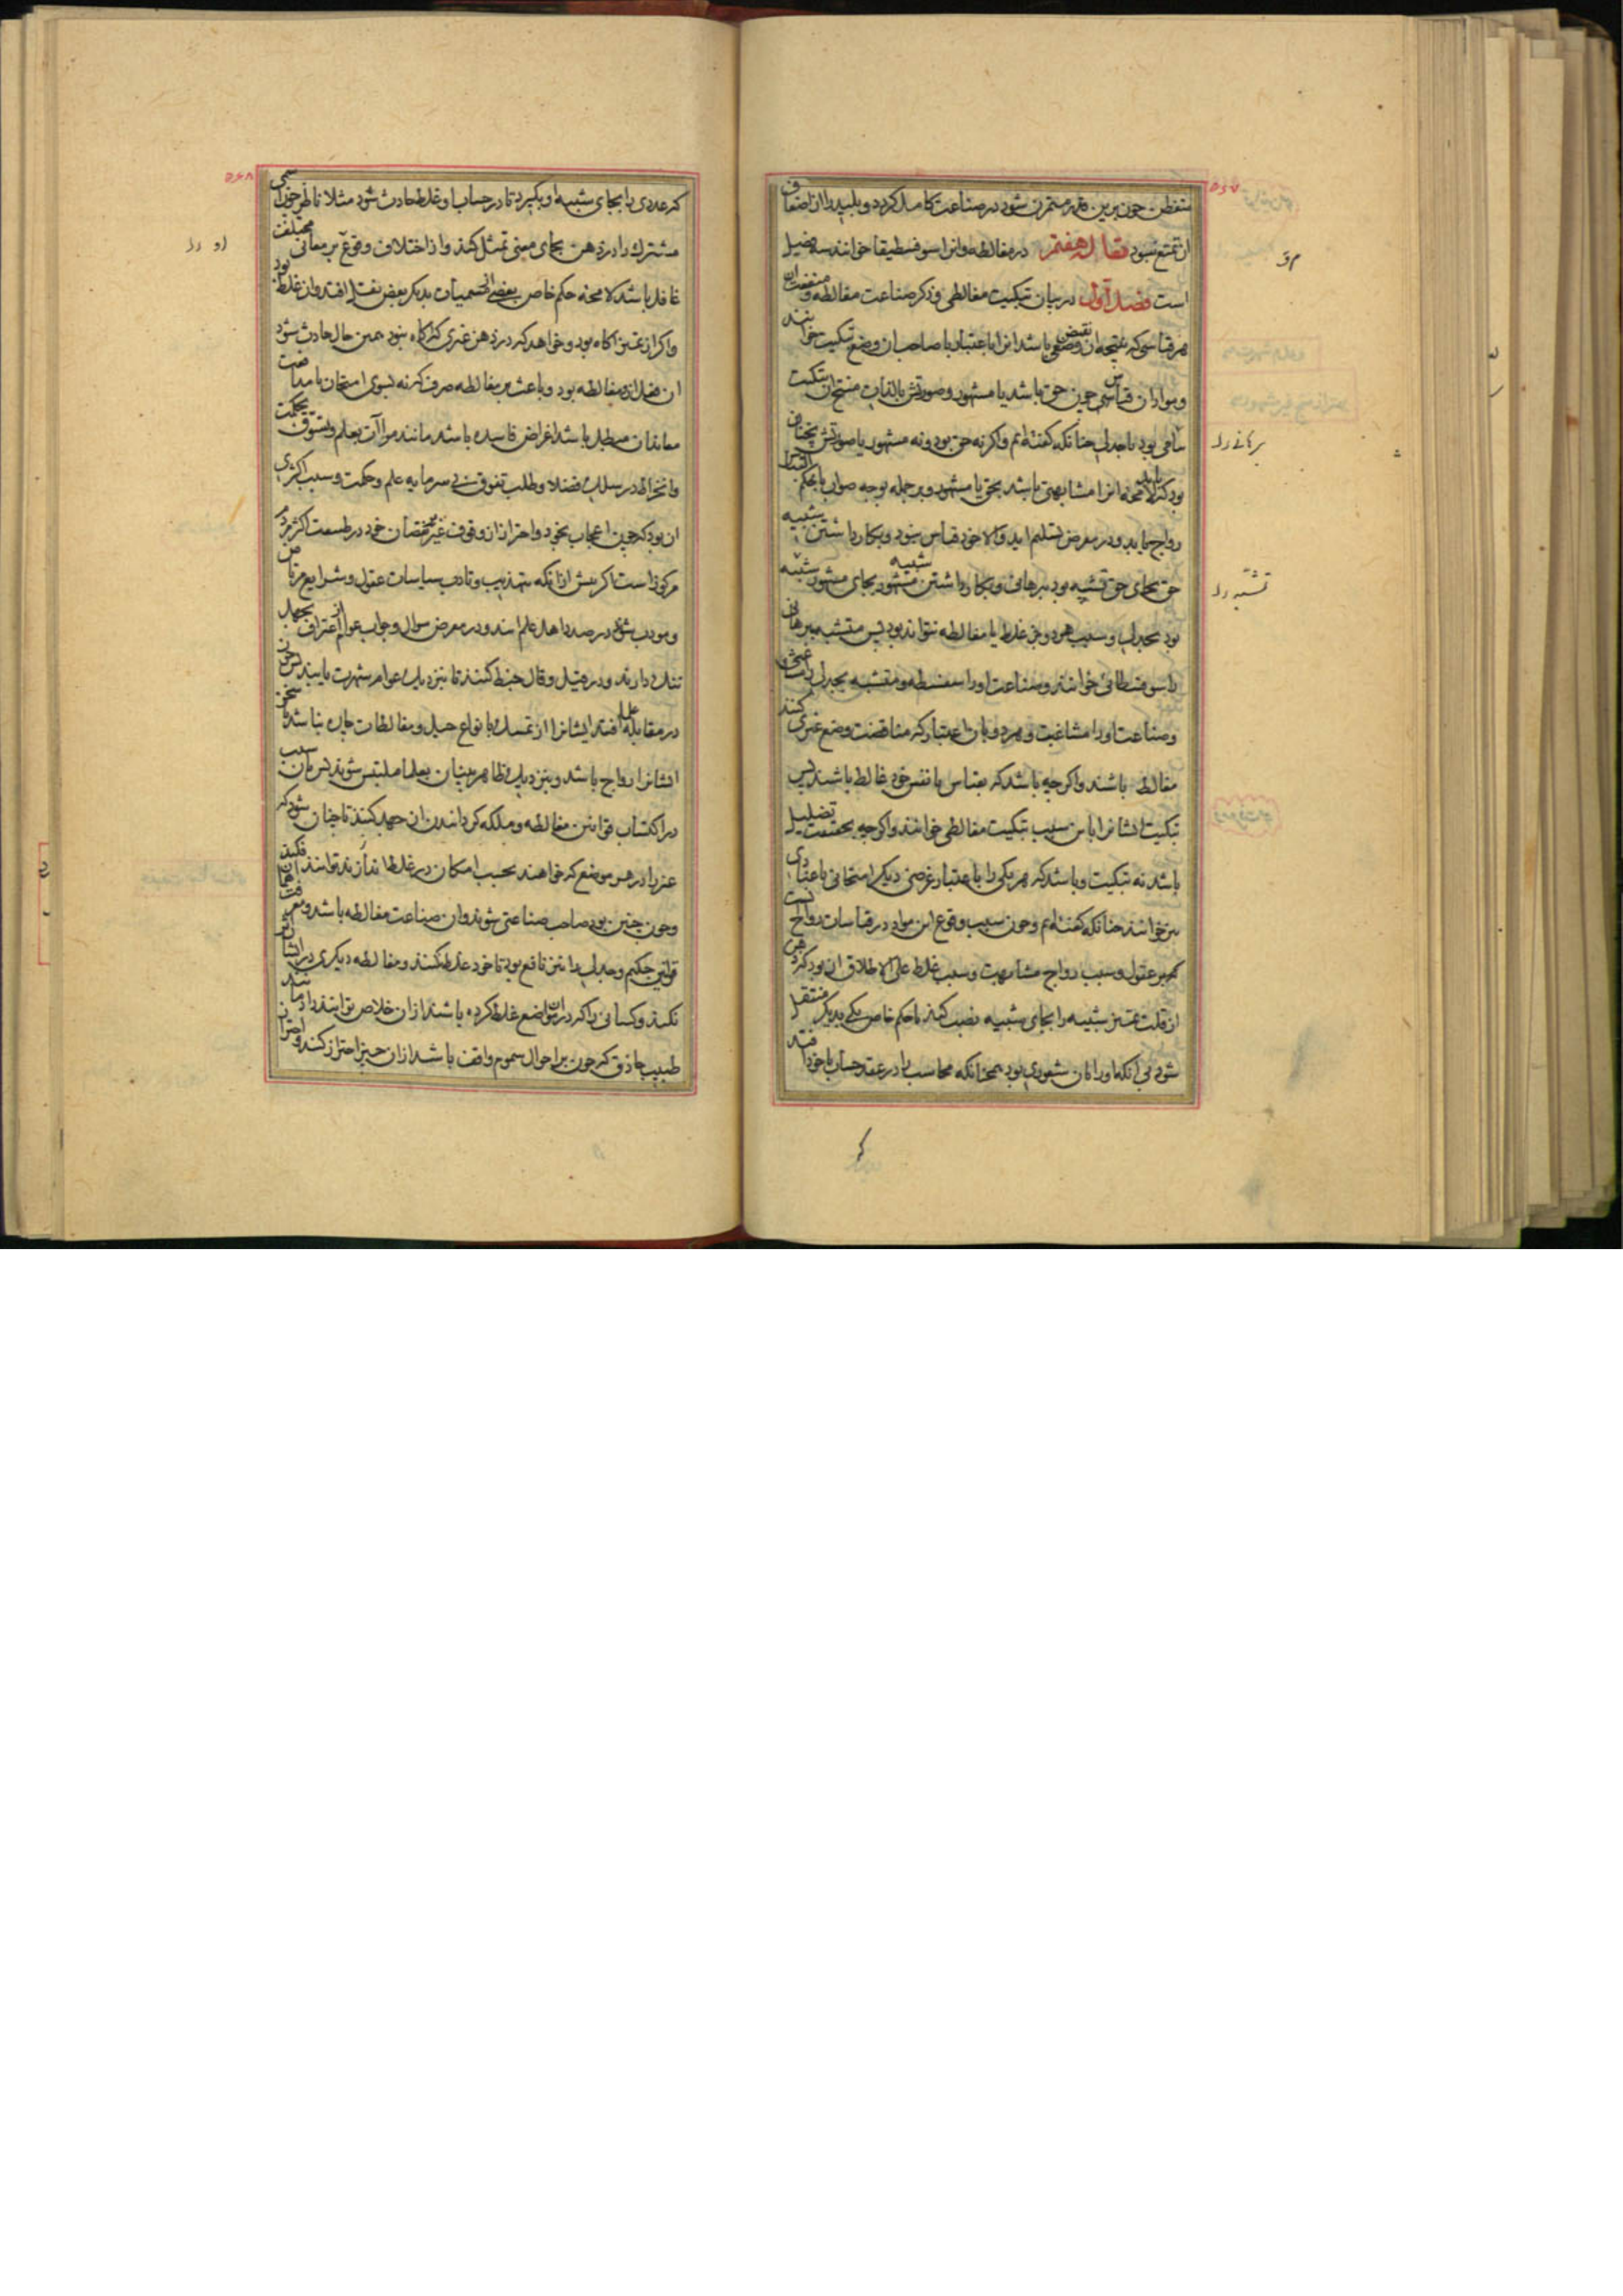 ۵۶۷
متفطن چون برین قدر متمرن شود در صناعت کامل گردد و بلید را از اضعاف
ان تمتع نبود مقاله هفتم در مغالطه و انرا سوفسطیقا خوانند سه فصل
است فصل اول در بیان تبکیت مغالطی و ذکر صناعت مغالطه و منفعت ان
هر قیاسی که نتیجه ان نقیض وضعی باشد انرا باعتبار با صاحب ان وضع تبکیت خوانند
و مواد ان قیاس چون حق باشد یا مشهور و صورتش بالذات منتج ان تبکیت
برهانی بود یا جدلی چنانکه گفته‌ایم و اگر نه حق بود و نه مشهور یا صورتش چنان
بود که لامحاله انرا مشابهتی باشد بحق یا مشهور و بر جمله بوجه صواب یا بحکم
رواج یابد و در معرض تسلیم اید والا خود قیاس نبود و بکار داشتن شبیه
حق بجای حق تشبیه بود ببرهانی و بکار داشتن شبیه مشهور بجای مشهور تشبیه
بود بجدلی و سبب هر دو جز غلط یا مغالطه نتواند بود پس متشبه ببرهانی
را سوفسطائی خوانند و صناعت او را سفسطه و متشبه بجدلی را مشاغبی
و صناعت او را مشاغبت و هر دو بان اعتبار که مناقضت وضع غیری کنند
مغالط باشند و اگرچه باشد که بقیاس با نفس خود غالط باشند پس
تبکیت ایشانرا باین سبب تبکیت مغالطی خوانند و اگرچه بحقیقت تضلیل
باشد نه تبکیت و باشد که هر یکی را باعتبار غرضی دیگر امتحانی یا عنادی
نیز خوانند چنانکه گفته‌ایم و چون سبب وقوع این مواد در قیاسات رواج
بر عقول و سبب رواج مشابهت و سبب غلط علی الاطلاق ان بود که ذهن
از قلت تمییز شبیه را بجای شبیه نصب کند تا حکم خاص یکی بدیگر منتقل
شود بی انکه او را بان شعوری بود همچنانکه محاسب را در عقد حساب با خود افتد
مق
برهانی را
تشبه را
۵۶۸
که عددی را بجای شبیه او بگیرد تا در حساب او غلط حادث شود مثلا ناظر چون اسمی
مشترک را در ذهن بجای معنی تمثل کند و از اختلاف وقوع آن بر معانی مختلف
غافل باشد لا محاله حکم خاص بعضی ازان مسمیات بدیگر بعض نقل افتد و ان غلط بود
و اگر از تمییز اگاه بود و خواهد که در ذهن غیری که اگاه نبود همین حال حادث شود
ان فعل ازو مغالطه بود و باعث بر مغالطه صرف که نه بسوی امتحان یا مدافعت
معاندان مبطل باشد اغراض فاسده باشد مانند مراآت بعلم و تشوق بحکمت
و انخراط در سلک فضلا و طلب تفوق بی سرمایه علم و حکمت و سبب اکثری
ان بود که چون اعجاب بخود و احتراز از وقوف غیر بر نقصان خود در طبیعت اکثر مردم
مرکوز است اگر پیش از انکه بتهذیب و تادیب سیاسات عقول و شرایع مرتاض
و مودب شوند در صدد اهل علم ایند و در معرض سوال و جواب عوام از اعتراف بجهل
ننگ دارند و در قیل و قال خبط کنند تا بنزدیک عوام شهرت یابند پس چون
در مقابله علما افتند ایشانرا از تمسک بانواع حیل و مغالطات چاره نباشد تا سخن
ایشانرا رواج باشد و بنزدیک ظاهر بینان بعلما ملتبس شوند پس بان سبب
در اکتساب قوانین مغالطه و ملکه گردانیدن ان جهد کنند تا چنان شود که
غیر را در هر موضع که خواهند بحسب امکان در غلط اندازند توانند افکند
و چون چنین بود صاحب صناعتی شوند و ان صناعت مغالطه باشد و معرفت همان
قوانین حکیم و جدلی را نیز نافع بود تا خود غلط نکنند و مغالطه دیگری در ایشان اثر
نکند و کسانی را که در ان مواضع غلط کرده باشند ازان خلاص توانند داد مانند
طبیب حاذق که چون بر احوال سموم واقف باشد ازان حیز احتراز کند و احتراز
او را